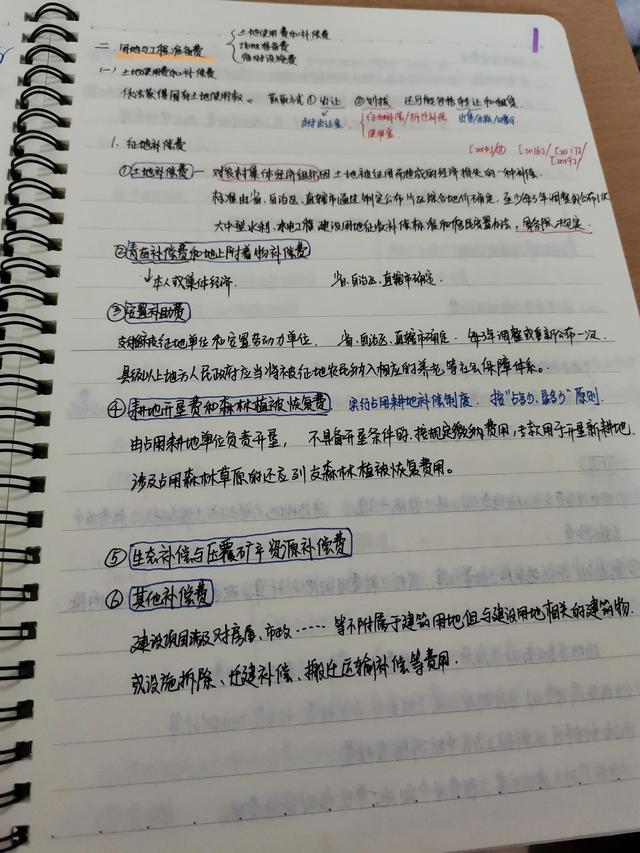 土地使用费和补偿费
二 用地与工程准备费
场地准备费
临时设施费
(一) 土地使用费和补偿费
依法获得国有土地使用权。 获取方式 ① 出让 ② 划拨 还可能包括转让和租赁.
支付出让金
征地补偿/拆迁补偿
使用金
1. 征地补偿费
[2016]/[2017]/
[2019]/
① 土地补偿费 — 对农村集体经济组织因土地被征用而造成的经济损失的一种补偿.
标准由省、自治区、直辖市通过制定公布片区综合地价确定, 至少每3年调整或公布1次
大中型水利、水电工程建设用地征收补偿标准和移民安置办法, 国务院规定.
② 青苗补偿费和地上附着物补偿费
↓本人或集体经济. 省、自治区、直辖市确定.
③ 安置补助费
支付给被征地单位和安置劳动力单位. 省、自治区、直辖市确定. 每3年调整或重新公布一次.
县级以上地方人民政府应当将被征地农民纳入相应的养老等社会保障体系。
④ 耕地开垦费和森林植被恢复费. 实行占用耕地补偿制度. 按"占多少、垦多少"原则.
由占用耕地单位负责开垦, 不具备开垦条件的, 按规定缴纳费用, 专款用于开垦新耕地.
涉及占用森林草原的还应列支森林植被恢复费用。
⑤ 生态补偿与压覆矿产资源补偿费
⑥ 其他补偿费
建设项目涉及对房屋、市政……等不附属于建筑用地但与建设用地相关的建筑物.
或设施拆除、迁建补偿、搬迁运输补偿等费用.